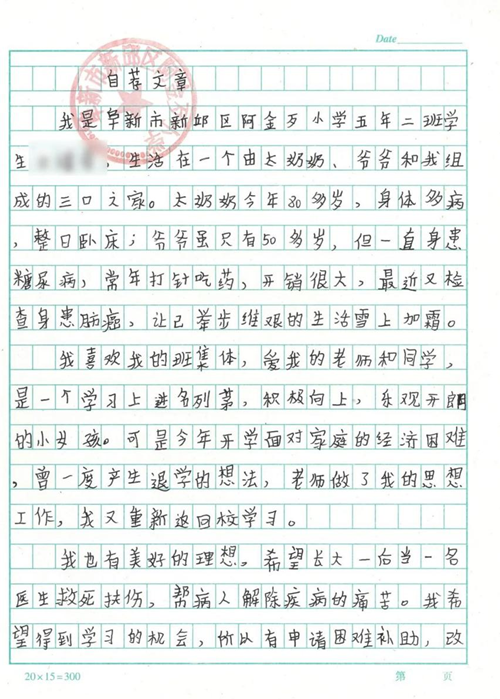 Date
自荐文章
我是阜新市新邱区阿金歹小学五年二班学
生，生活在一个由太奶奶、爷爷和我组
成的三口之家。太奶奶今年80多岁，身体多病
，整日卧床；爷爷虽只有50多岁，但一直身患
糖尿病，常年打针吃药，开销很大，最近又检
查身患肺癌，让已举步维艰的生活雪上加霜。
我喜欢我的班集体，爱我的老师和同学，
是一个学习上进名列第，积极向上，乐观开朗
的小女孩。可是今年开学面对家庭的经济困难
，曾一度产生退学的想法，老师做了我的思想
工作，我又重新返回校学习。
我也有美好的理想，希望长大一后当一名
医生救死扶伤，帮病人解除疾病的痛苦。我希
望得到学习的机会，所以有申请困难补助，改
20×15=300 第 页